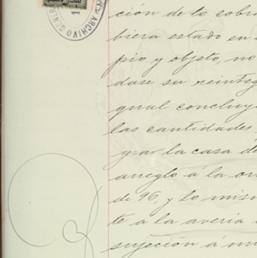 ARCHIVO GENERAL
ción de la cobra
biera estado en
pio y objeto, no
dase su reintegr
gral concluy
las cantidades,
gar la casa d
arreglo a la or
de 96, y lo mism
te a la avería
sujeción á m